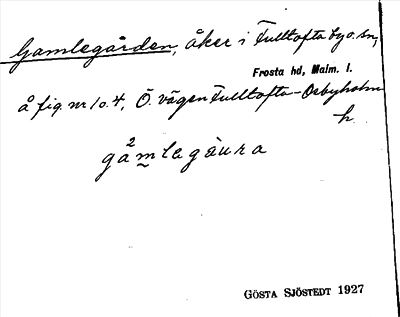 Gamlegården, åker i Fulltofta by o. sn,
Frosta hd, Malm. l.
å fig. nr 10.4, Ö. vägen Fulltofta-Osbyholm
h.
gamlegaura
GÖSTA SJÖSTEDT 1927